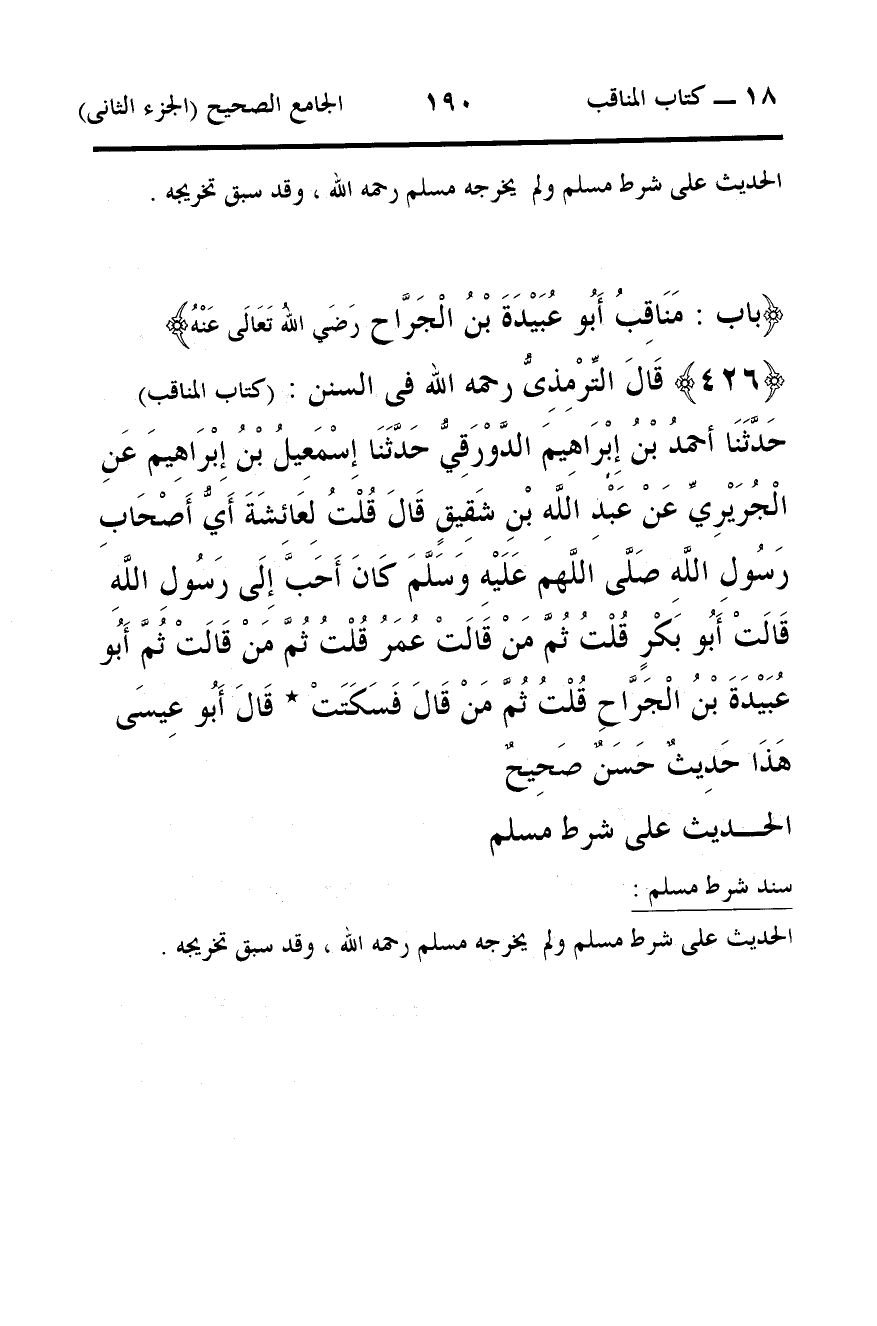 ١٨ ــ كتاب المناقب ١٩٠ الجامع الصحيح (الجزء الثانى)
الحديث على شرط مسلم ولم يخرجه مسلم رحمه الله ، وقد سبق تخريجه .
﴿باب : مَنَاقِبُ أَبُو عُبَيْدَةَ بْنُ الْجَرَّاح رَضَي اللهُ تَعَالَى عَنْهُ﴾
﴿٤٢٦﴾ قَالَ التِّرْمِذِىُّ رحمه الله فى السنن : (كتاب المناقب)
حَدَّثَنَا أحمدُ بْنُ إِبْرَاهِيمَ الدَّوْرَقِيُّ حَدَّثَنَا إِسْمَعِيلُ بْنُ إِبْرَاهِيمَ عَنِ
الْجُرَيْرِيِّ عَنْ عَبْدِ اللَّهِ بْنِ شَقِيقٍ قَالَ قُلْتُ لِعَائِشَةَ أَيُّ أَصْحَابِ
رَسُولِ اللَّهِ صَلَّى اللهم عَلَيْهِ وَسَلَّمَ كَانَ أَحَبَّ إِلَى رَسُولِ اللَّهِ
قَالَتْ أَبُو بَكْرٍ قُلْتُ ثُمَّ مَنْ قَالَتْ عُمَرُ قُلْتُ ثُمَّ مَنْ قَالَتْ ثُمَّ أَبُو
عُبَيْدَةَ بْنُ الْجَرَّاحِ قُلْتُ ثُمَّ مَنْ قَالَ فَسَكَتَتْ * قَالَ أَبُو عِيسَى
هَذَا حَدِيثٌ حَسَنٌ صَحِيحٌ
الحـــديث على شرط مسلم
سند شرط مسلم :
الحديث على شرط مسلم ولم يخرجه مسلم رحمه الله ، وقد سبق تخريجه .